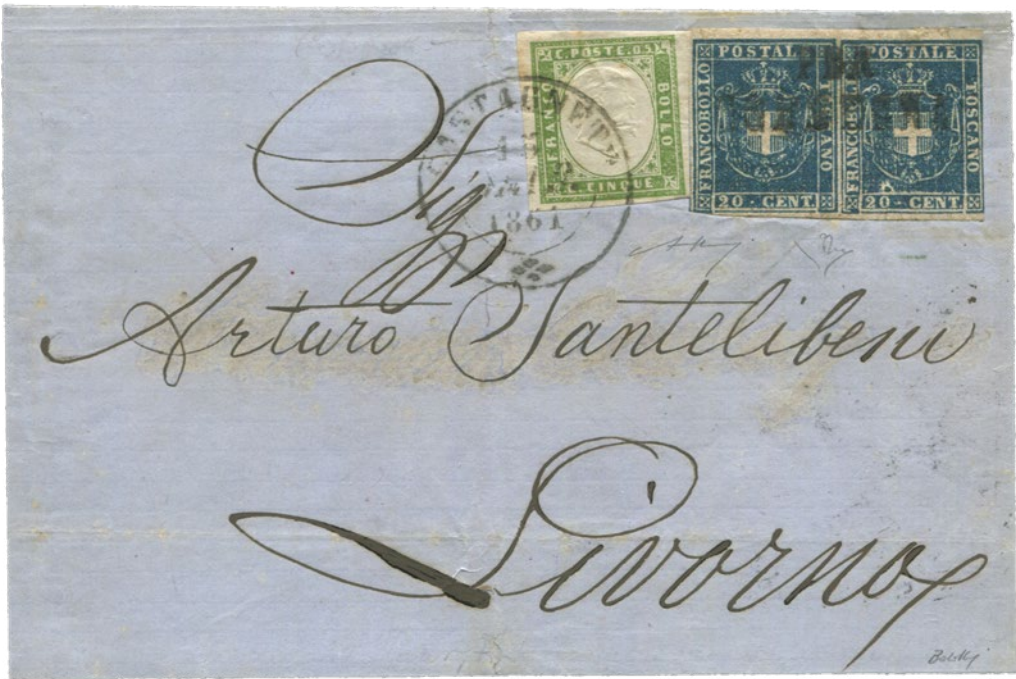 C. POSTE. 05
FRANCO
BOLLO
CINQUE
FRANCOBOLLO
POSTALE
TOSCANO
20 - CENT.
FRANCOBOLLO
POSTALE
TOSCANO
20 - CENT.
PER
1861
Sig
Arturo Santelibeni
Livorno